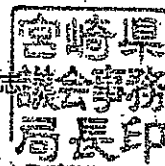 宮崎県
志議会事務
局長印